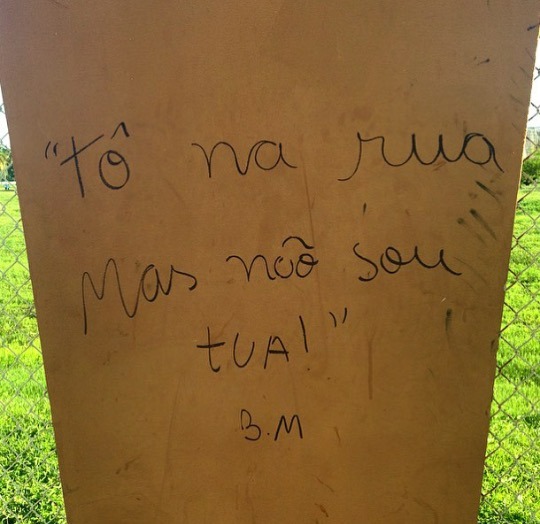 "tô na rua
Mas não sou
tUA!"
B.M